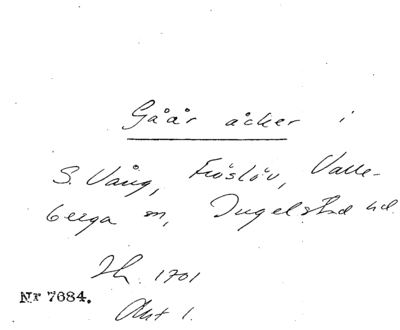 Gåår åcker i
S. Vång, Fröslöv, Valle-
berga sn, Ingelstad hd.
Jh. 1701
Nr 7684.
Akt 1.